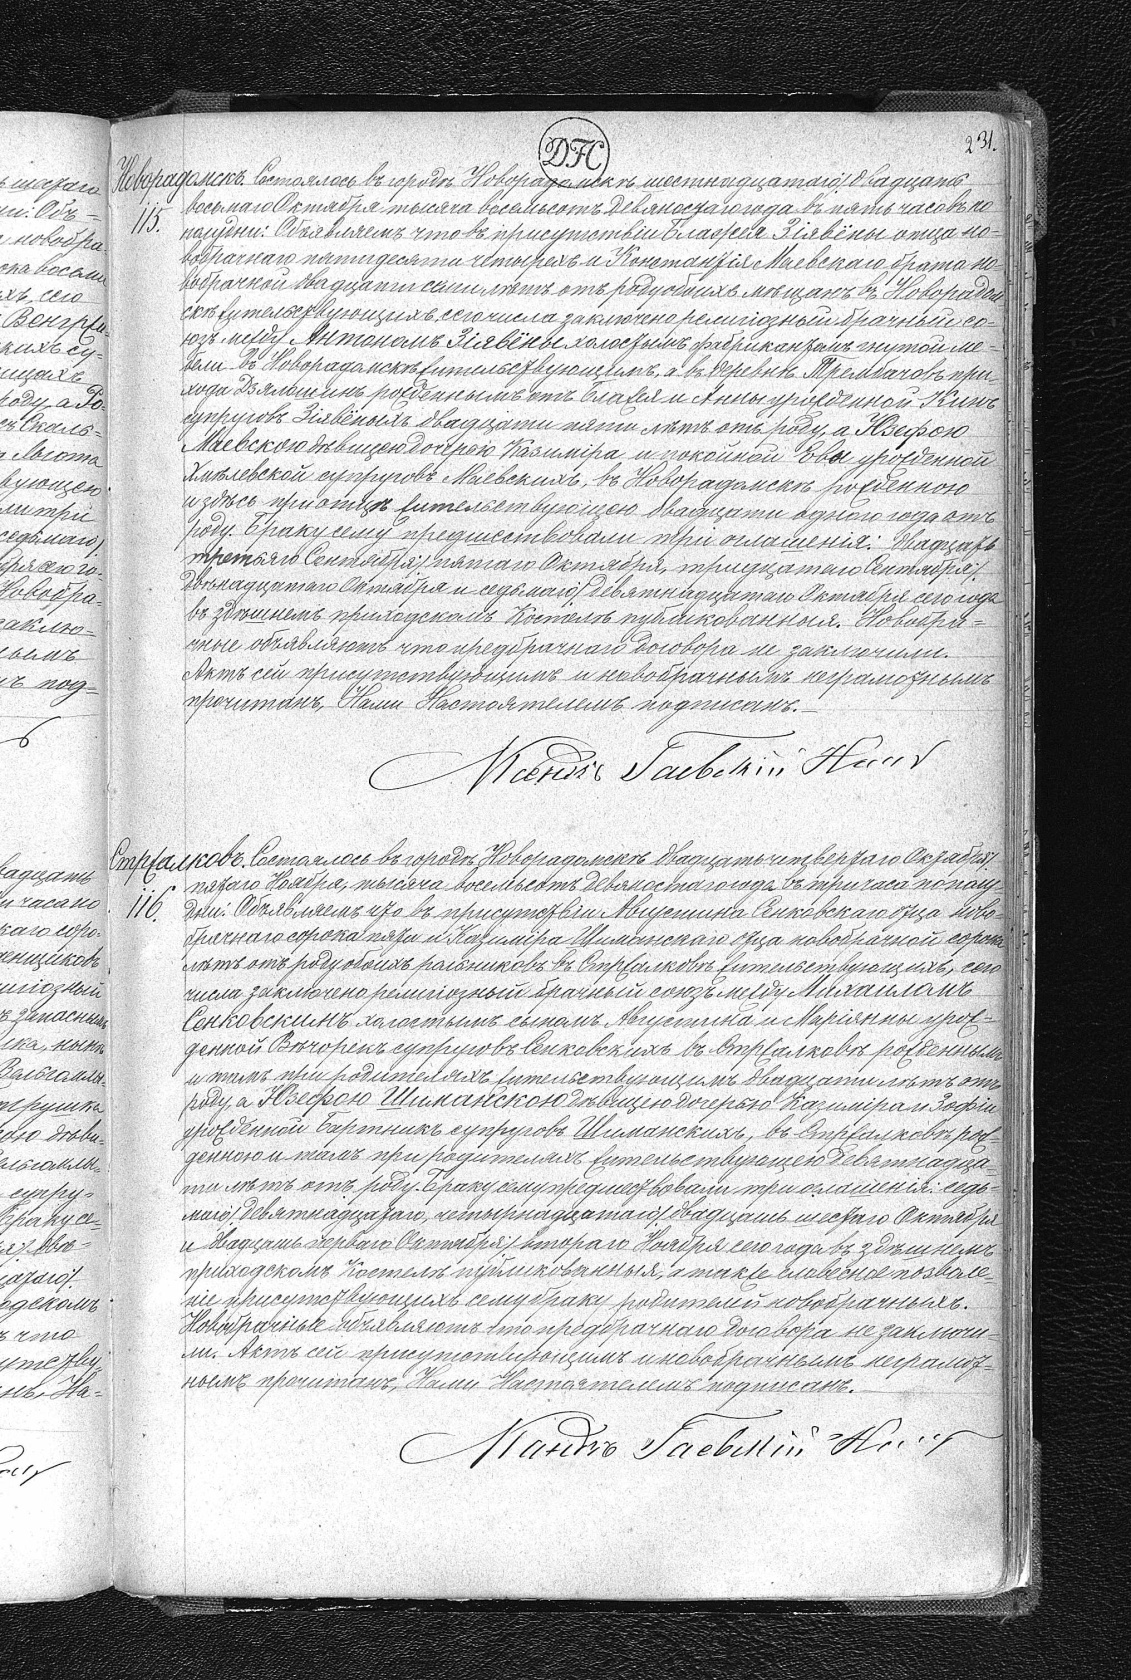 231.
DFC
Новорадомскъ. Состоялось въ городѣ Новорадомскѣ шестнадцатаго/ двадцать
115.
восьмаго Октября тысяча восемьсотъ девяностаго года въ пять часовъ по
полудни: Объявляемъ что въ присутствіи Блажея Зіявёны отца но-
вобрачнаго пятидесяти четырехъ и Константія Маевскаго брата но-
вобрачной двадцати семи лѣтъ отъ роду обоихъ мѣщанъ въ Новорадом
скѣ жительствующихъ, сего числа заключено религіозный брачный со-
юзъ между Антономъ Зіявёны холостымъ фабрикантомъ гнутой ме-
бели въ Новорадомскѣ жительствующимъ, а въ деревнѣ Трембачовъ при-
хода Дзялошинъ рожденнымъ отъ Блажея и Анны урожденной Кинъ
супруговъ Зіявёныхъ двадцати пяти лѣтъ отъ роду, а Юзефою
Маевскою дѣвицею дочерью Казиміра и покойной Евы урожденной
Хмѣлевской супруговъ Маевскихъ, въ Новорадомскѣ рожденною
и здѣсь при отцѣ жительствующею двадцати одного года отъ
роду. Браку сему предшествовали три оглашенія: двадцать
третьяго Сентября/ пятаго Октября, тридцатаго Сентября/.
двѣнадцатаго Октября и седьмаго/ девятнадцатаго Октября сего года
въ здѣшнемъ приходскомъ Костелѣ публикованныя. Новобра-
чные объявляютъ что предбрачнаго договора не заключили.
Актъ сей присутствующимъ и новобрачнымъ неграмотнымъ
прочитанъ, Нами Настоятелемъ подписанъ.
Ксендзъ Гаевскій
Стржалковъ. Состоялось въ городѣ Новорадомскѣ двадцать четвертаго Октября/.
116.
пятаго Ноября, тысяча восемьсотъ девяностаго года въ три часа по полу-
дни: Объявляемъ что въ присутствіи Августина Сенковскаго отца ново-
брачнаго сорока пяти и Казиміра Шиманскаго отца новобрачной сорока
лѣтъ отъ роду обоихъ рольниковъ въ Стржалковѣ жительствующихъ, сего
числа заключено религіозный брачный союзъ между Михаиломъ
Сенковскимъ холостымъ сыномъ Августина и Маріянны урож-
денной Вѣчорекъ супруговъ Сенковскихъ въ Стржалковѣ рожденнымъ
и тамъ при родителяхъ жительствующимъ двадцати лѣтъ отъ
роду, а Юзефою Шиманскою дѣвицею дочерью Казиміра и Зофіи
урожденной Бартникъ супруговъ Шиманскихъ, въ Стржалковѣ рож-
денною и тамъ при родителяхъ жительствующею девятнадца-
ти лѣтъ отъ роду. Браку сему предшествовали три оглашенія: седь-
маго/ девятнадцатаго, четырнадцатаго/ двадцать шестаго Октября
и двадцать перваго Октября/ втораго Ноября сего года въ здѣшнемъ
приходскомъ Костелѣ публикованныя, а также словесное позволе-
ніе присутствующихъ сему браку родителей новобрачныхъ.
Новобрачные объявляютъ что предбрачнаго договора не заключи-
ли. Актъ сей присутствующимъ и новобрачнымъ неграмот-
нымъ прочитанъ, Нами Настоятелемъ подписанъ.
Ксендзъ Гаевскій